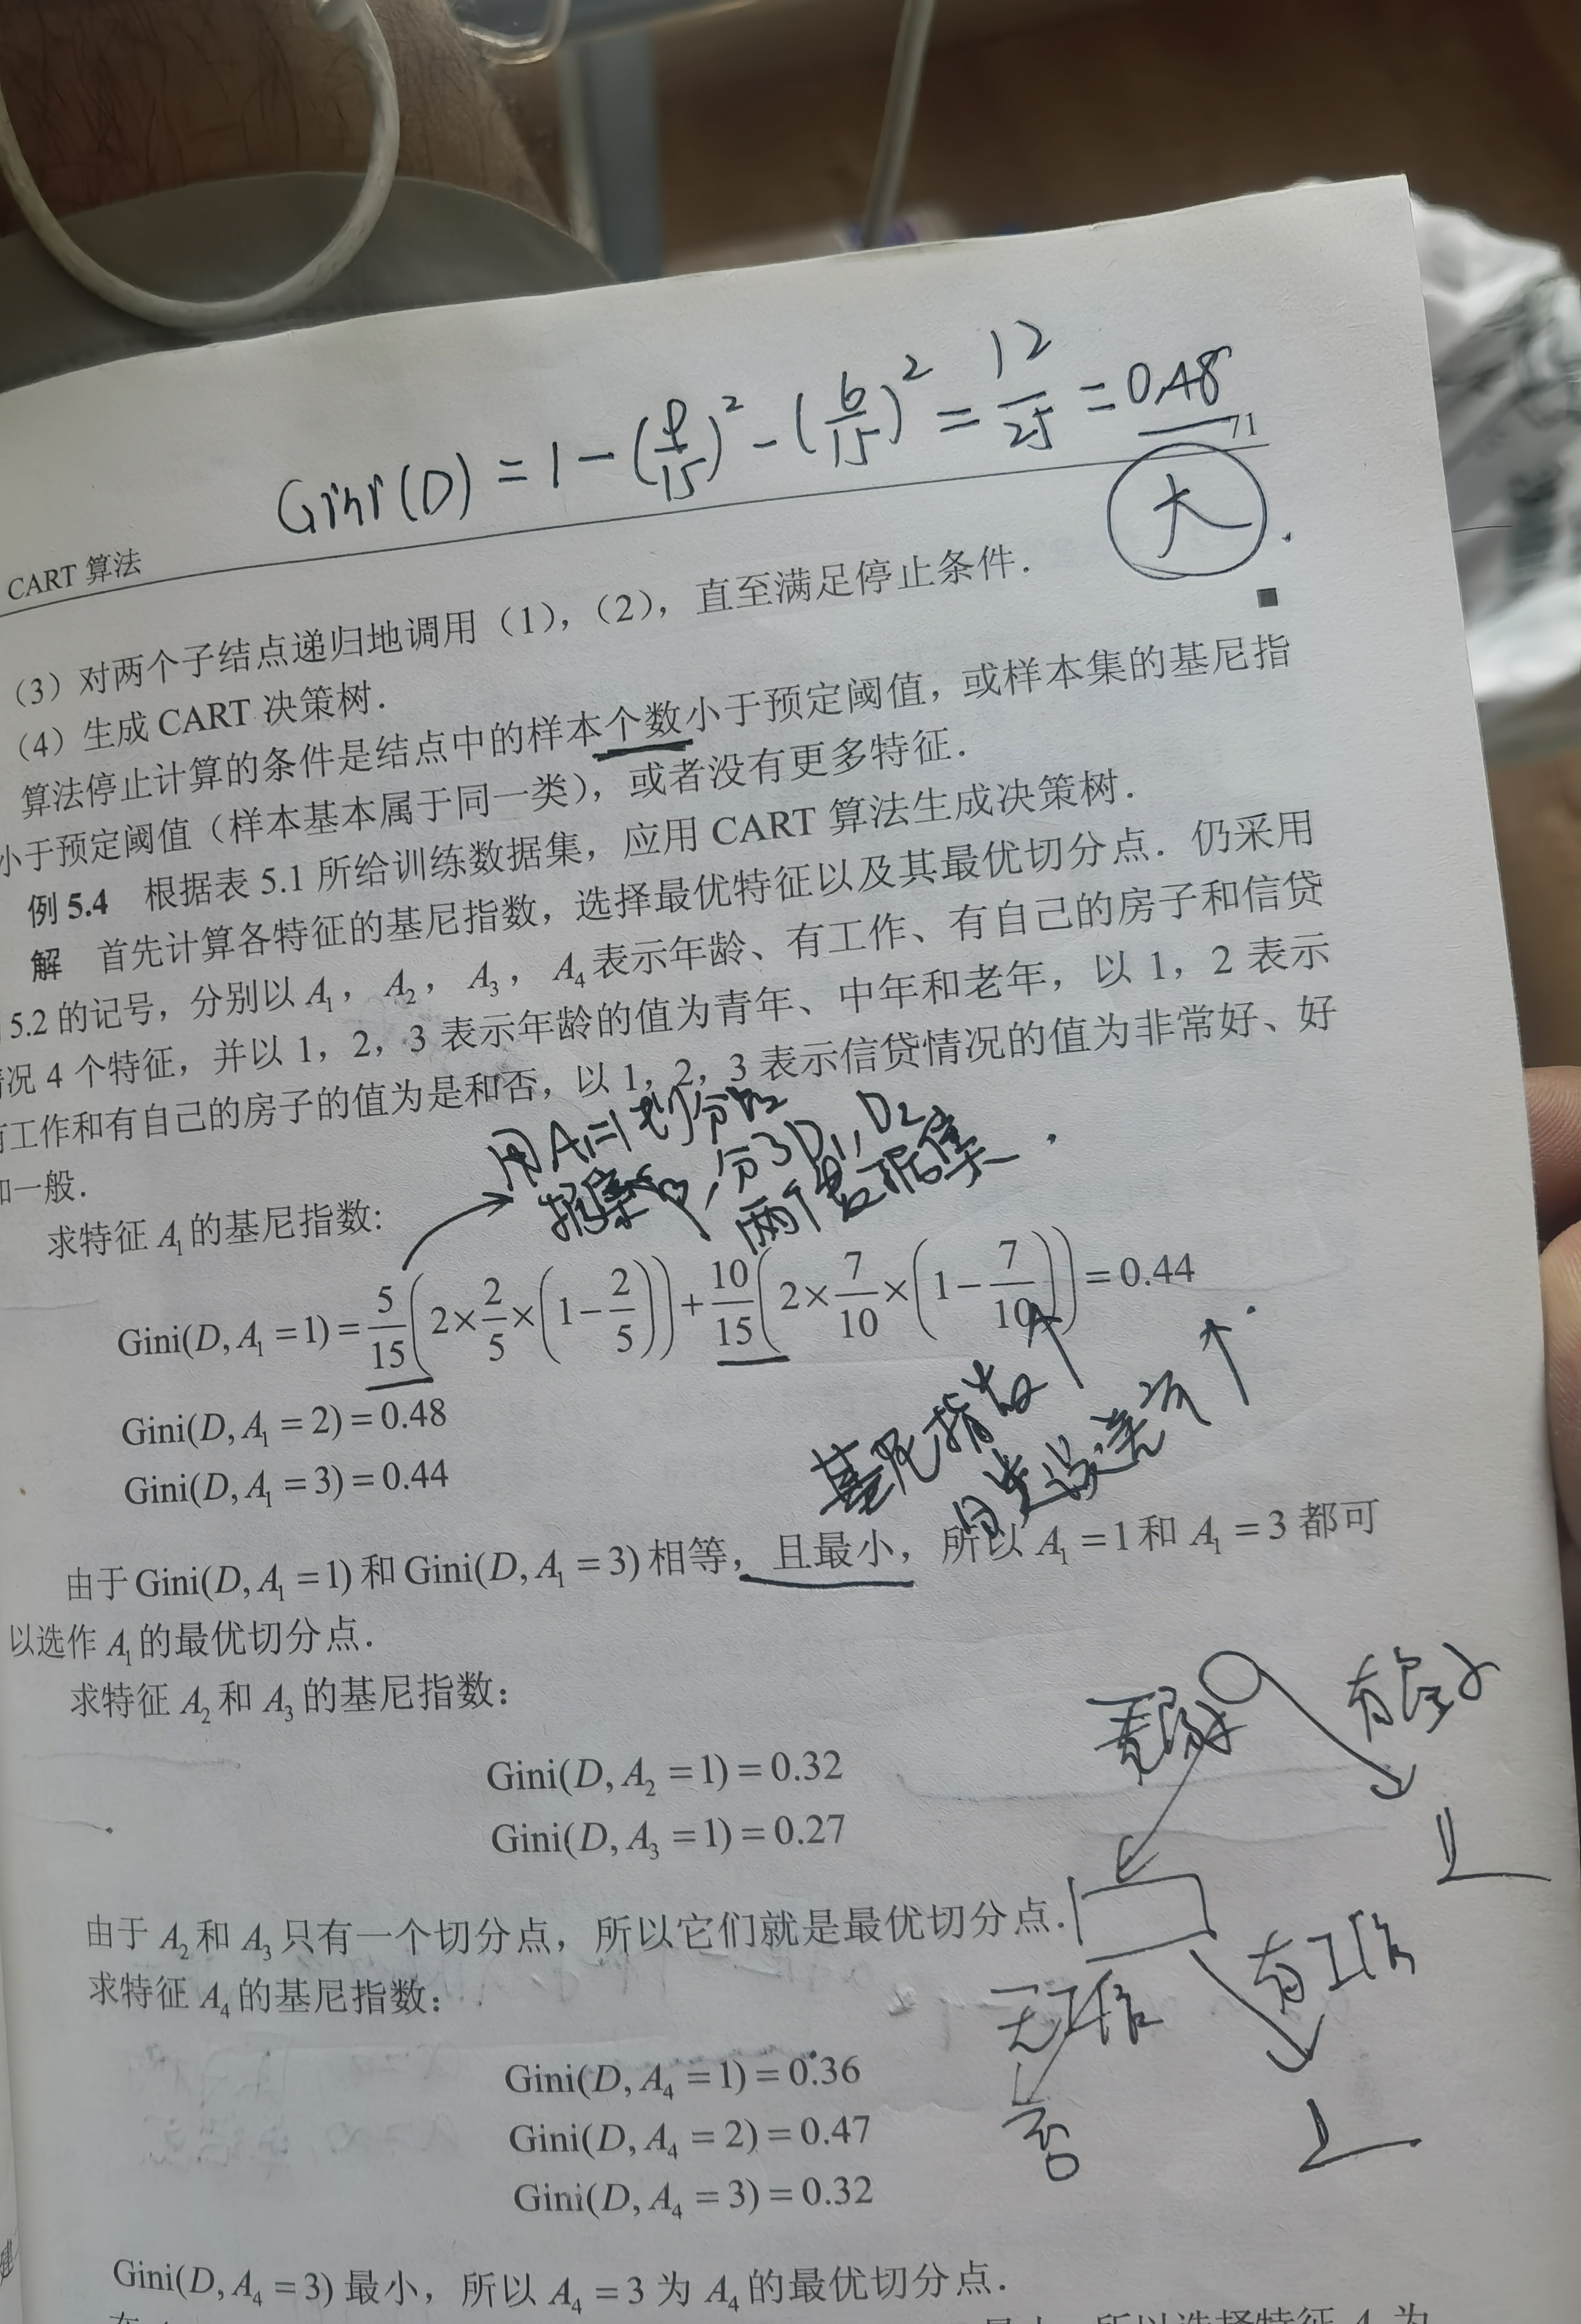 Gini(D) = 1 - (9/15)² - (6/15)² = 12/25 = 0.48
71
大
CART 算法
（3）对两个子结点递归地调用（1），（2），直至满足停止条件.
（4）生成 CART 决策树. ■
算法停止计算的条件是结点中的样本个数小于预定阈值，或样本集的基尼指
小于预定阈值（样本基本属于同一类），或者没有更多特征.
例 5.4 根据表 5.1 所给训练数据集，应用 CART 算法生成决策树.
解 首先计算各特征的基尼指数，选择最优特征以及其最优切分点. 仍采用
5.2 的记号，分别以 A₁，A₂，A₃，A₄ 表示年龄、有工作、有自己的房子和信贷
况 4 个特征，并以 1，2，3 表示年龄的值为青年、中年和老年，以 1，2 表示
有工作和有自己的房子的值为是和否，以 1，2，3 表示信贷情况的值为非常好、好
和一般.
用A₁=1划分
分了D₁,D₂
两个数据集
求特征 A₁ 的基尼指数:
Gini(D, A₁ = 1) = 5/15 (2 × 2/5 × (1 − 2/5)) + 10/15 (2 × 7/10 × (1 − 7/10)) = 0.44
Gini(D, A₁ = 2) = 0.48
Gini(D, A₁ = 3) = 0.44
基尼指数↑
由于 Gini(D, A₁ = 1) 和 Gini(D, A₁ = 3) 相等，且最小，所以 A₁ = 1 和 A₁ = 3 都可
以选作 A₁ 的最优切分点.
求特征 A₂ 和 A₃ 的基尼指数:
无房子
有房子
Gini(D, A₂ = 1) = 0.32
Gini(D, A₃ = 1) = 0.27
由于 A₂ 和 A₃ 只有一个切分点，所以它们就是最优切分点.
求特征 A₄ 的基尼指数:
无工作
有工作
否
Gini(D, A₄ = 1) = 0.36
Gini(D, A₄ = 2) = 0.47
Gini(D, A₄ = 3) = 0.32
Gini(D, A₄ = 3) 最小，所以 A₄ = 3 为 A₄ 的最优切分点.
所以选择特征